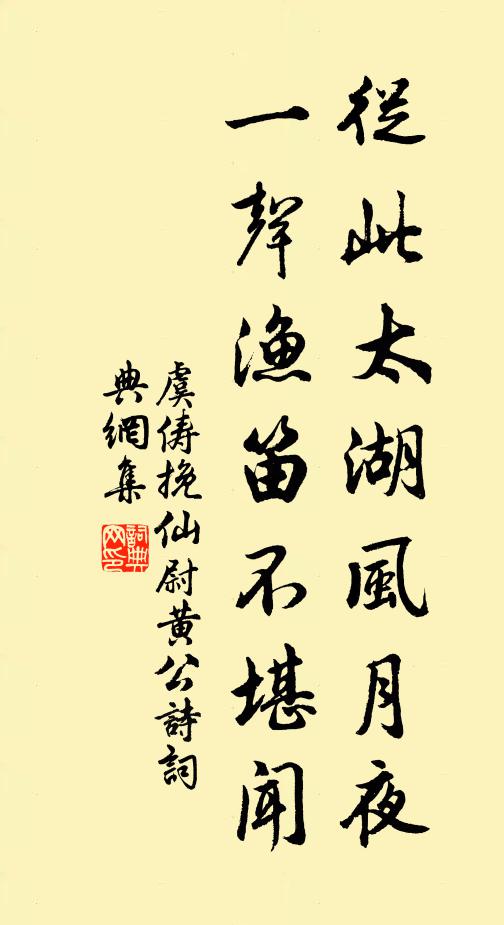 從此太湖風月夜
一聲漁笛不堪聞
虞儔挽仙尉黄公詩詞
典網集
詞典網印